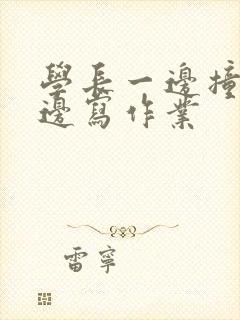 學長一邊撞
邊寫作業
雷寧